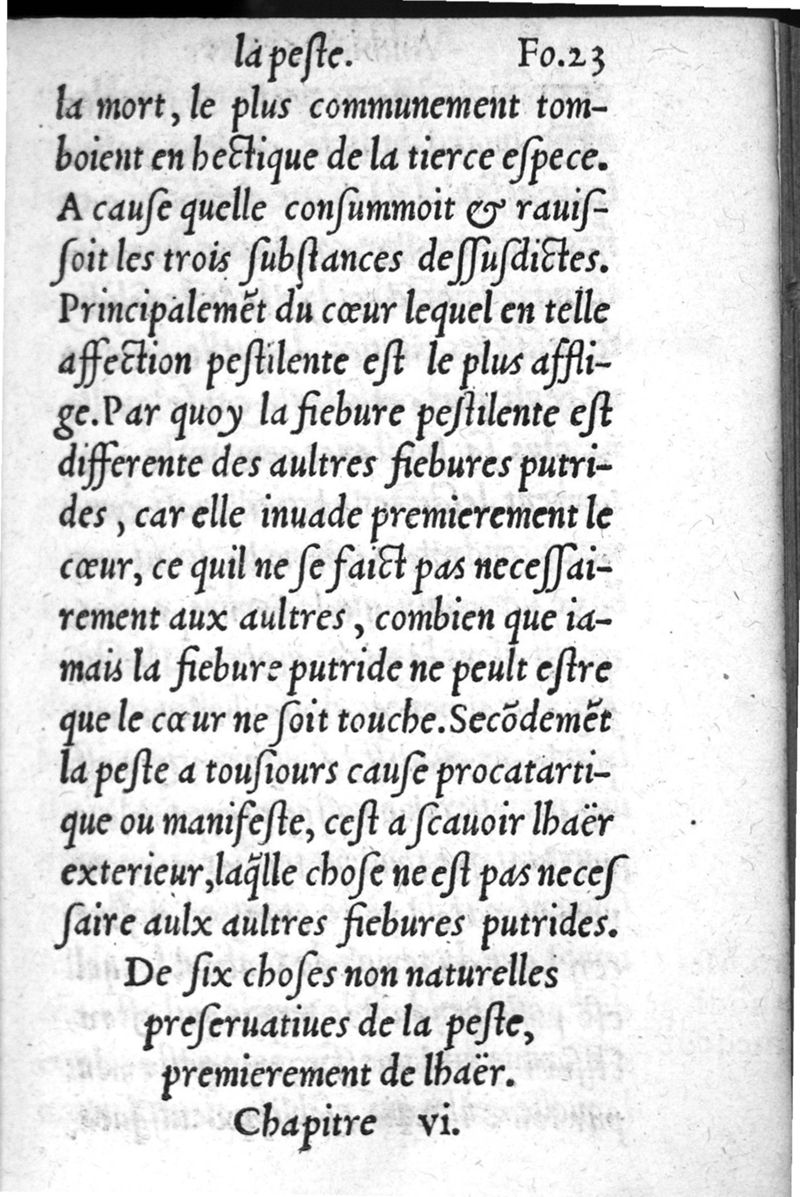 la peſte. Fo.23
la mort, le plus communement tom-
boient en hectique de la tierce eſpece.
A cauſe quelle conſummoit & rauiſ-
ſoit les trois ſubſtances deſſuſdictes.
Principalemẽt du cœur lequel en telle
affection peſtilente eſt le plus affli-
ge. Par quoy la fiebure peſtilente eſt
differente des aultres fiebures putri-
des, car elle inuade premierement le
cœur, ce quil ne ſe faict pas neceſſai-
rement aux aultres, combien que ia-
mais la fiebure putride ne peult eſtre
que le cœur ne ſoit touche. Secõdemẽt
la peſte a touſiours cauſe procatarti-
que ou manifeſte, ceſt a ſcauoir lhaër
exterieur, laq̃lle choſe ne eſt pas neceſ
ſaire aulx aultres fiebures putrides.
De ſix choſes non naturelles
preſeruatiues de la peſte,
premierement de lhaër.
Chapitre vi.